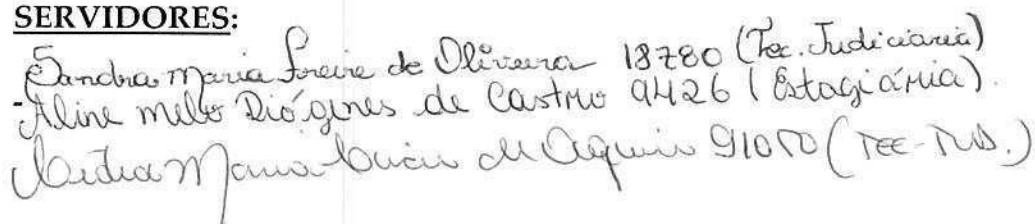 SERVIDORES:
Sandra Maria Freire de Oliveira 18780 (Tec. Judiciária)
- Aline melo Diógines de Castro 9426 (Estagiária).
Maria de Aquino (TEC-JUD.)